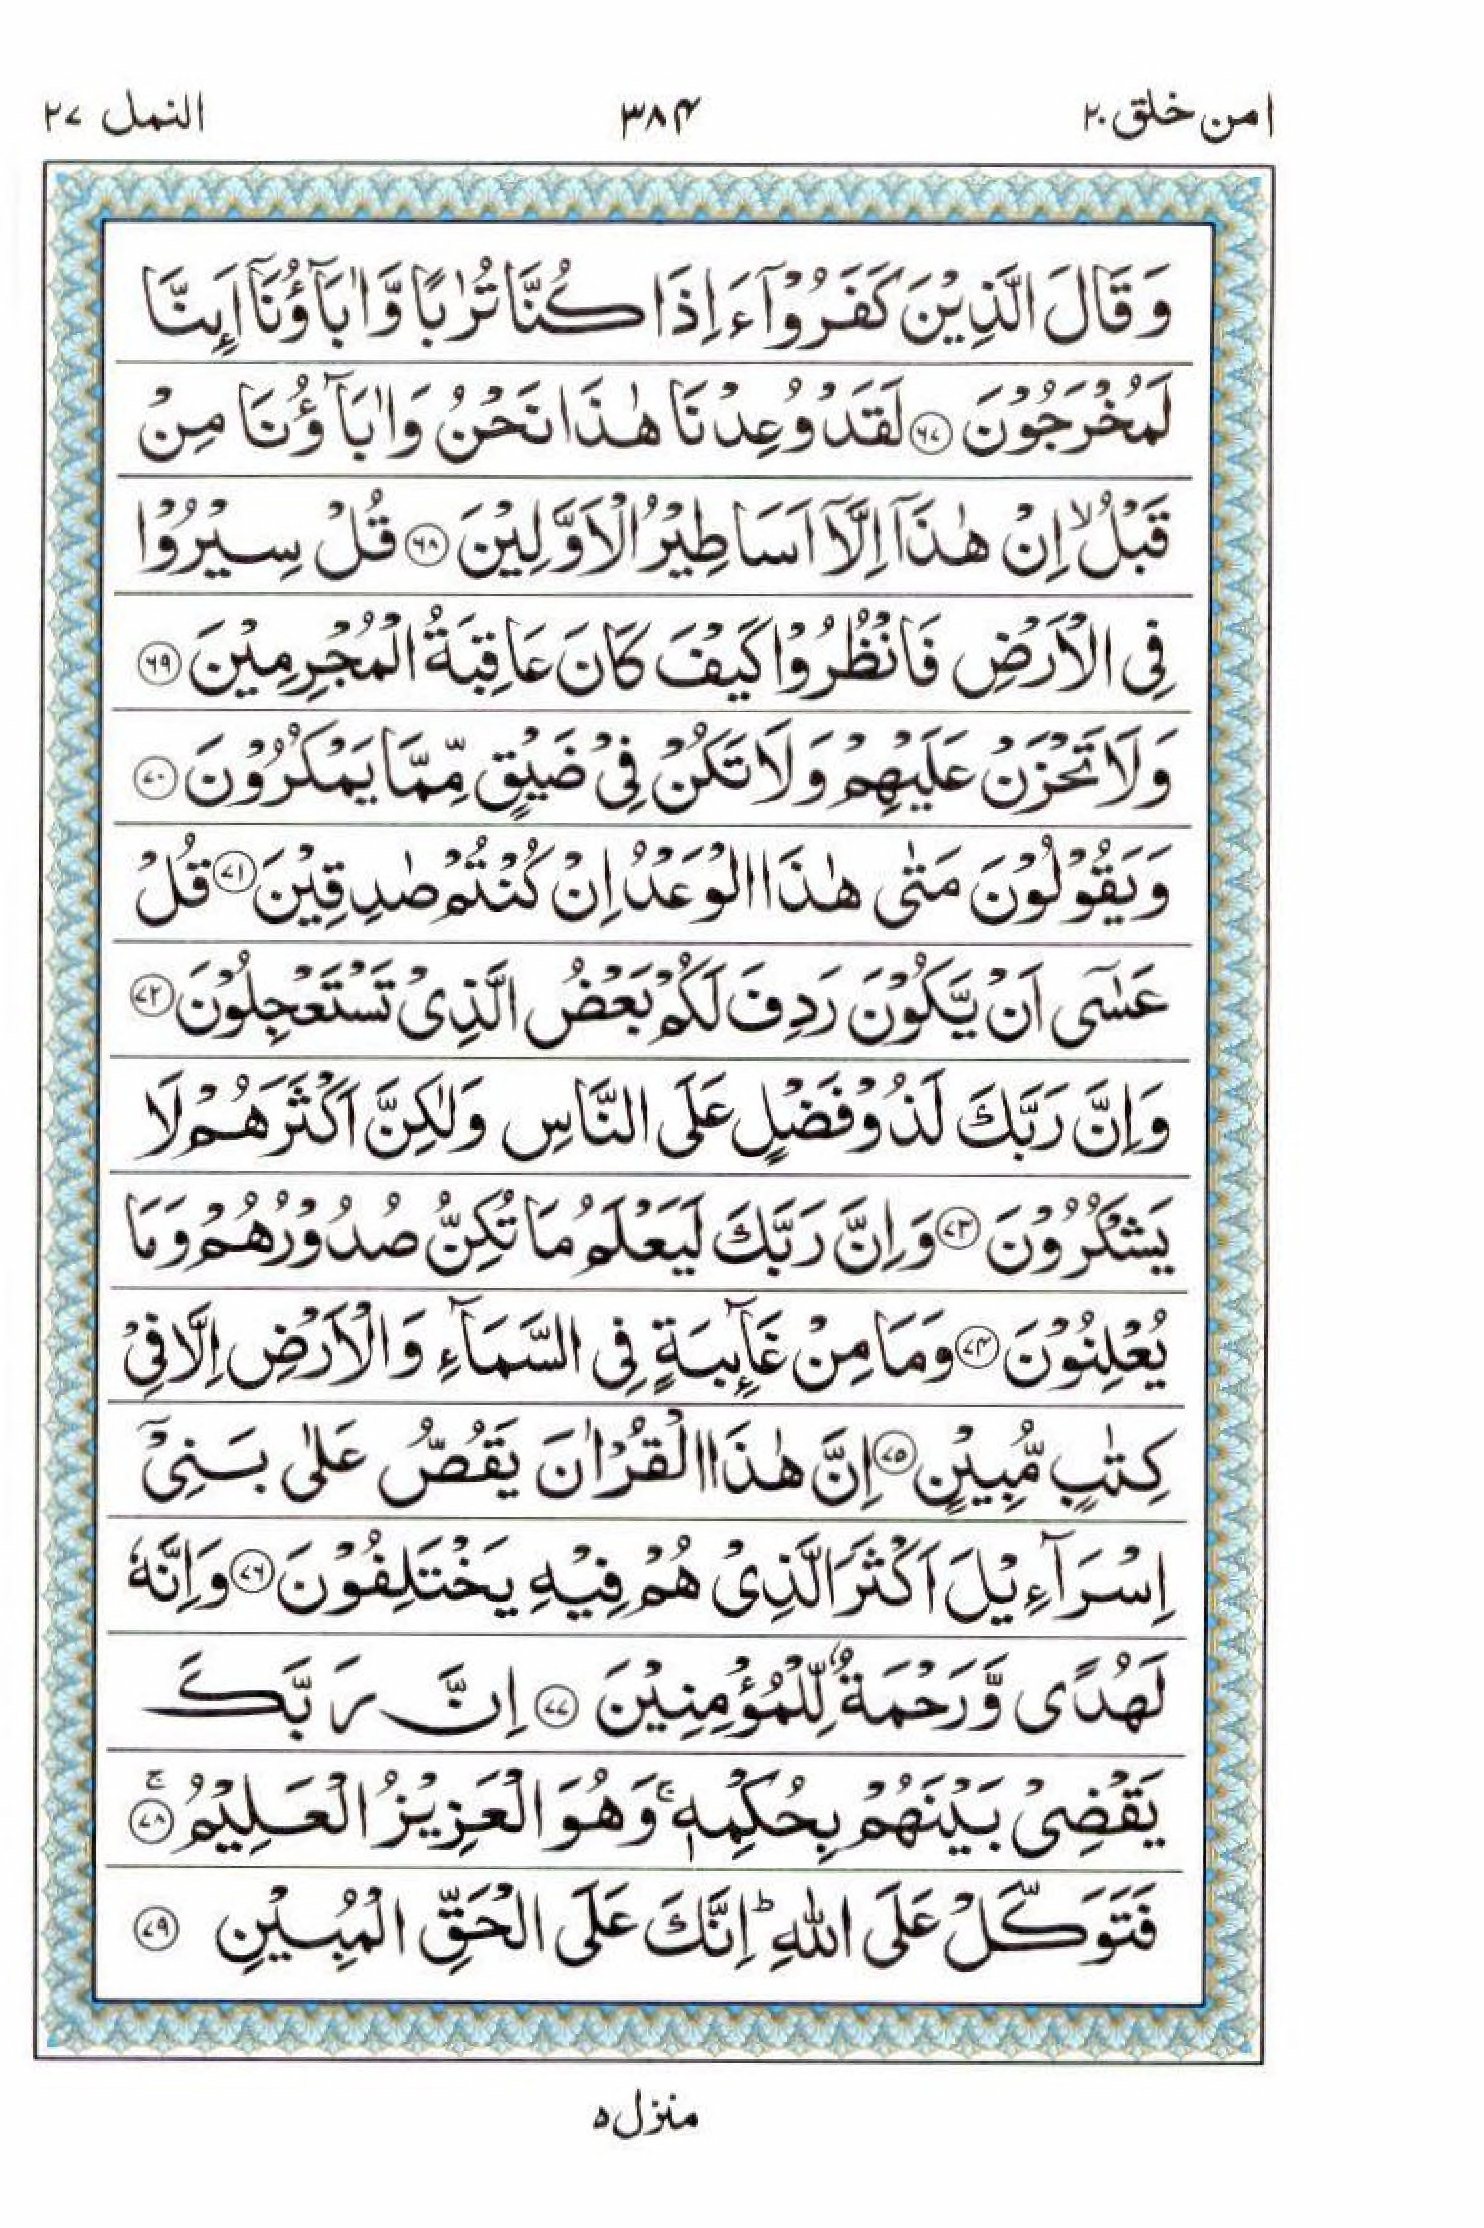 امن خلق ٢٠ ٣٨۴ النمل ٢٧
وَقَالَ الَّذِيْنَ كَفَرُوْۤا ءَاِذَا كُنَّا تُرٰبًا وَّاٰبَآؤُنَاۤ اَىِٕنَّا
لَمُخْرَجُوْنَ ﴿۶۷﴾ لَقَدْ وُعِدْنَا هٰذَا نَحْنُ وَاٰبَآؤُنَا مِنْ
قَبْلُ ۙ اِنْ هٰذَاۤ اِلَّاۤ اَسَاطِيْرُ الْاَوَّلِيْنَ ﴿۶۸﴾ قُلْ سِيْرُوْا
فِى الْاَرْضِ فَانْظُرُوْا كَيْفَ كَانَ عَاقِبَةُ الْمُجْرِمِيْنَ ﴿۶۹﴾
وَلَا تَحْزَنْ عَلَيْهِمْ وَلَا تَكُنْ فِىْ ضَيْقٍ مِّمَّا يَمْكُرُوْنَ ﴿۷۰﴾
وَيَقُوْلُوْنَ مَتٰى هٰذَا الْوَعْدُ اِنْ كُنْتُمْ صٰدِقِيْنَ ﴿۷۱﴾ قُلْ
عَسٰۤى اَنْ يَّكُوْنَ رَدِفَ لَكُمْ بَعْضُ الَّذِىْ تَسْتَعْجِلُوْنَ ﴿۷۲﴾
وَاِنَّ رَبَّكَ لَذُوْ فَضْلٍ عَلَى النَّاسِ وَلٰكِنَّ اَكْثَرَهُمْ لَا
يَشْكُرُوْنَ ﴿۷۳﴾ وَاِنَّ رَبَّكَ لَيَعْلَمُ مَا تُكِنُّ صُدُوْرُهُمْ وَمَا
يُعْلِنُوْنَ ﴿۷۴﴾ وَمَا مِنْ غَآىِٕبَةٍ فِى السَّمَآءِ وَالْاَرْضِ اِلَّا فِىْ
كِتٰبٍ مُّبِيْنٍ ﴿۷۵﴾ اِنَّ هٰذَا الْقُرْاٰنَ يَقُصُّ عَلٰى بَنِىْۤ
اِسْرَآءِيْلَ اَكْثَرَ الَّذِىْ هُمْ فِيْهِ يَخْتَلِفُوْنَ ﴿۷۶﴾ وَاِنَّهٗ
لَهُدًى وَّرَحْمَةٌ لِّلْمُؤْمِنِيْنَ ﴿۷۷﴾ اِنَّ رَبَّكَ
يَقْضِىْ بَيْنَهُمْ بِحُكْمِهٖ ۚ وَهُوَ الْعَزِيْزُ الْعَلِيْمُ ﴿۷۸﴾ ۚ
فَتَوَكَّلْ عَلَى اللّٰهِ ؕ اِنَّكَ عَلَى الْحَقِّ الْمُبِيْنِ ﴿۷۹﴾
منزل ۵